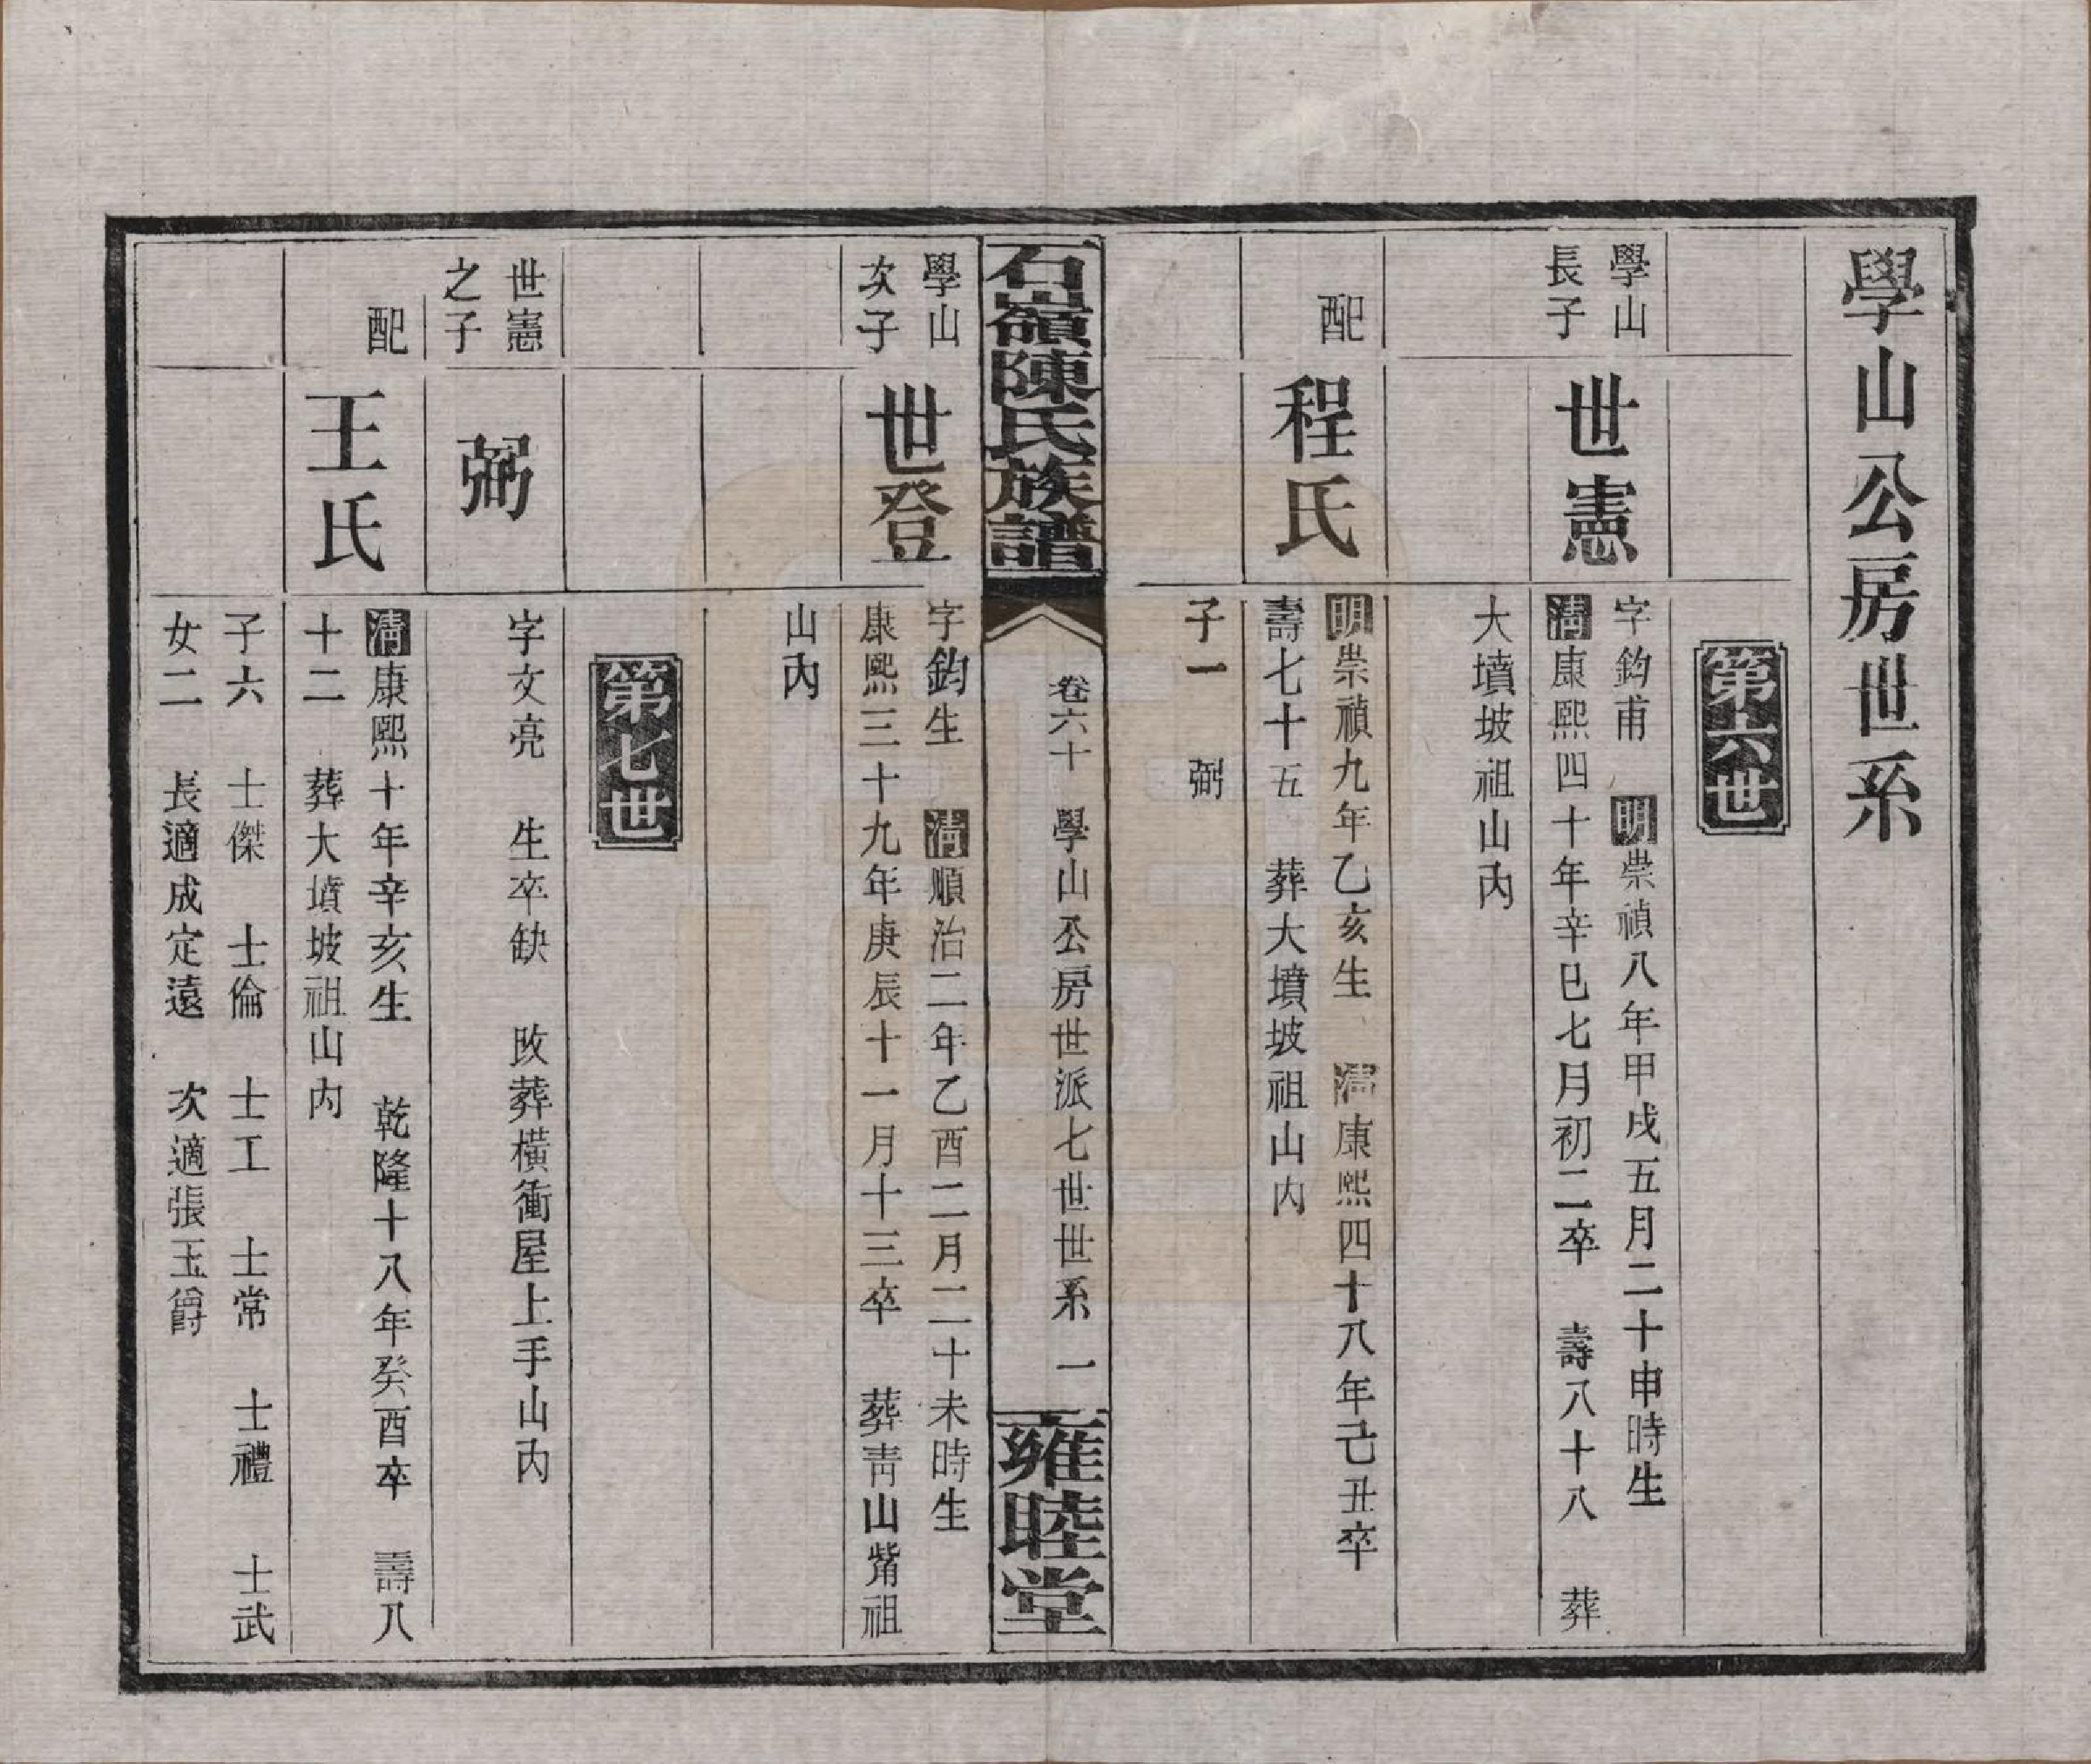 學山公房世系
第六世
學山
長子
世憲
字鈞甫 明崇禎八年甲戌五月二十申時生
清康熙四十年辛巳七月初二卒 壽八十八 葬
大墳坡祖山內
配
程氏
明崇禎九年乙亥生 清康熙四十八年己丑卒
壽七十五 葬大墳坡祖山內
子一 弼
石嶺陳氏族譜
卷六十 學山公房世派七世世系 一
雍睦堂
學山
次子
世登
字鈞生 清順治二年乙酉二月二十未時生
康熙三十九年庚辰十一月十三卒 葬青山觜祖
山內
第七世
世憲
之子
弼
字文亮 生卒缺 改葬橫衝屋上手山內
配
王氏
清康熙十年辛亥生 乾隆十八年癸酉卒 壽八
十二 葬大墳坡祖山內
子六 士傑 士倫 士工 士常 士禮 士武
女二 長適成定遠 次適張玉爵